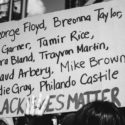 George Floyd, Breonna Taylor,
Garner, Tamir Rice,
Bland, Trayvon Martin,
Arbery, Mike Brown
Gray, Philando Castile
BLACK LIVES MATTER